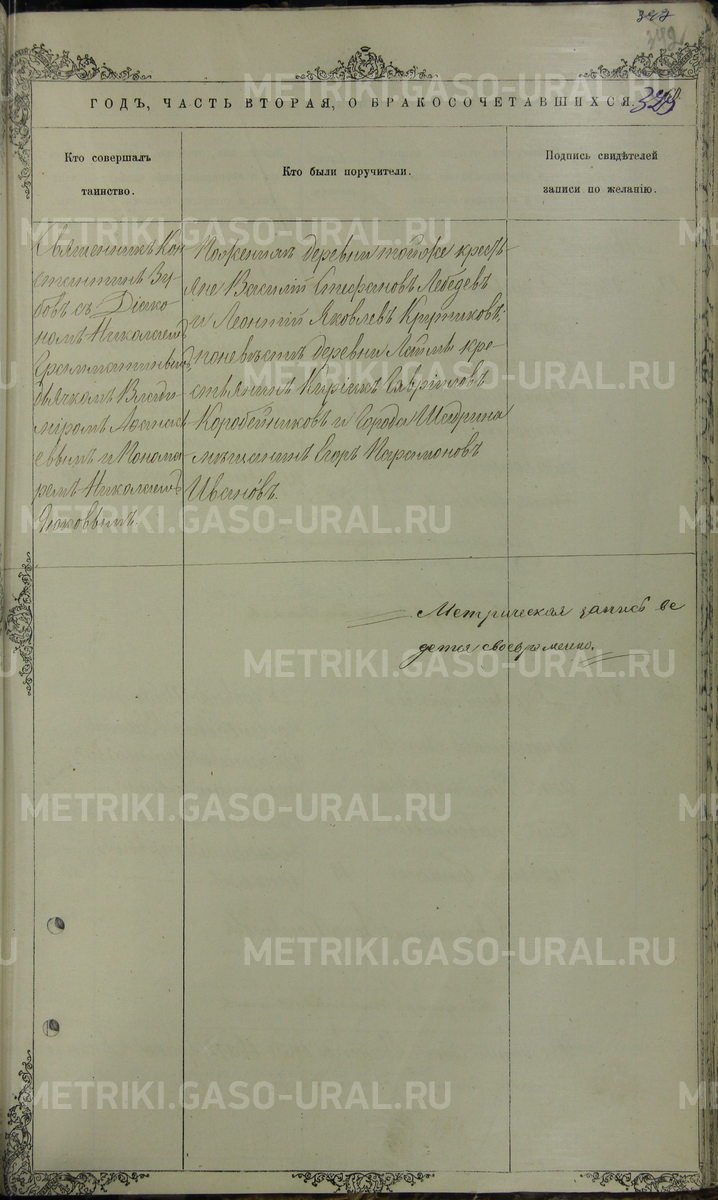 347
349
ГОДЪ, ЧАСТЬ ВТОРАЯ, О БРАКОСОЧЕТАВШИХСЯ.
Кто совершалъ
таинство.
Кто были поручители.
Подпись свидѣтелей
записи по желанію.
Священникъ Кон
стантинъ Зу
бовъ съ Діако
номъ Николаемъ
дьячкомъ Влади
миромъ Афанась
евымъ и Понома
ремъ Николаемъ
По женихѣ деревни тойже кресть
яне Василій Стефановъ Лебедевъ
и Леонтій Яковлевъ Крутиковъ;
по невѣстѣ деревни кре
стьянинъ Киріакъ Гавріиловъ
Коробейниковъ и Города Шадрина
мѣщанинъ Егоръ Парамоновъ
Ивановъ.
Метрическая запись ве
дется своевременно.
METRIKI.GASO-URAL.RU